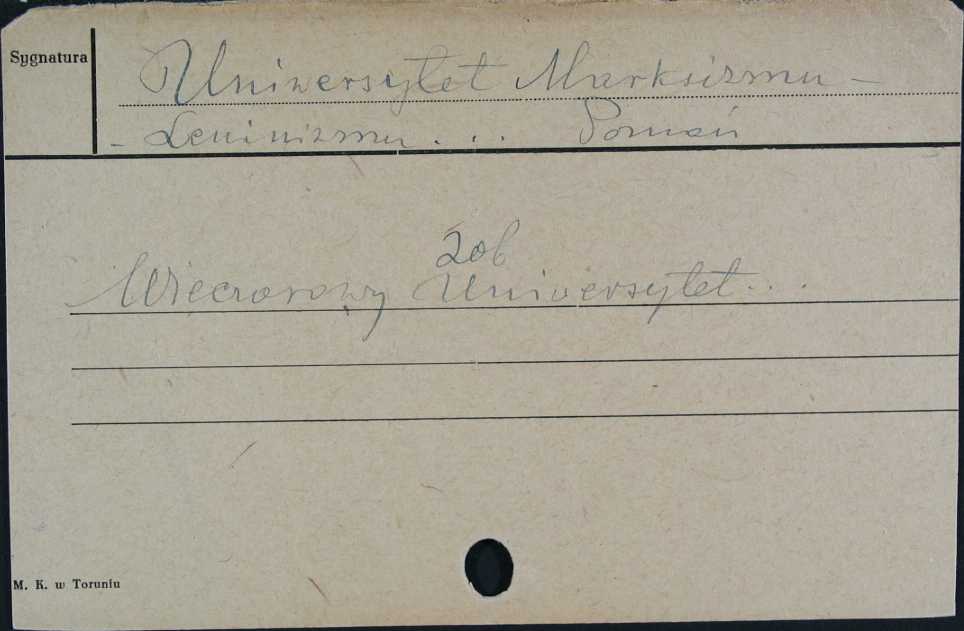 Sygnatura
Uniwersytet Marksizmu -
- Leninizmu . . . Poznań
Zob
Wieczorowy Uniwersytet . . .
M. K. w Toruniu